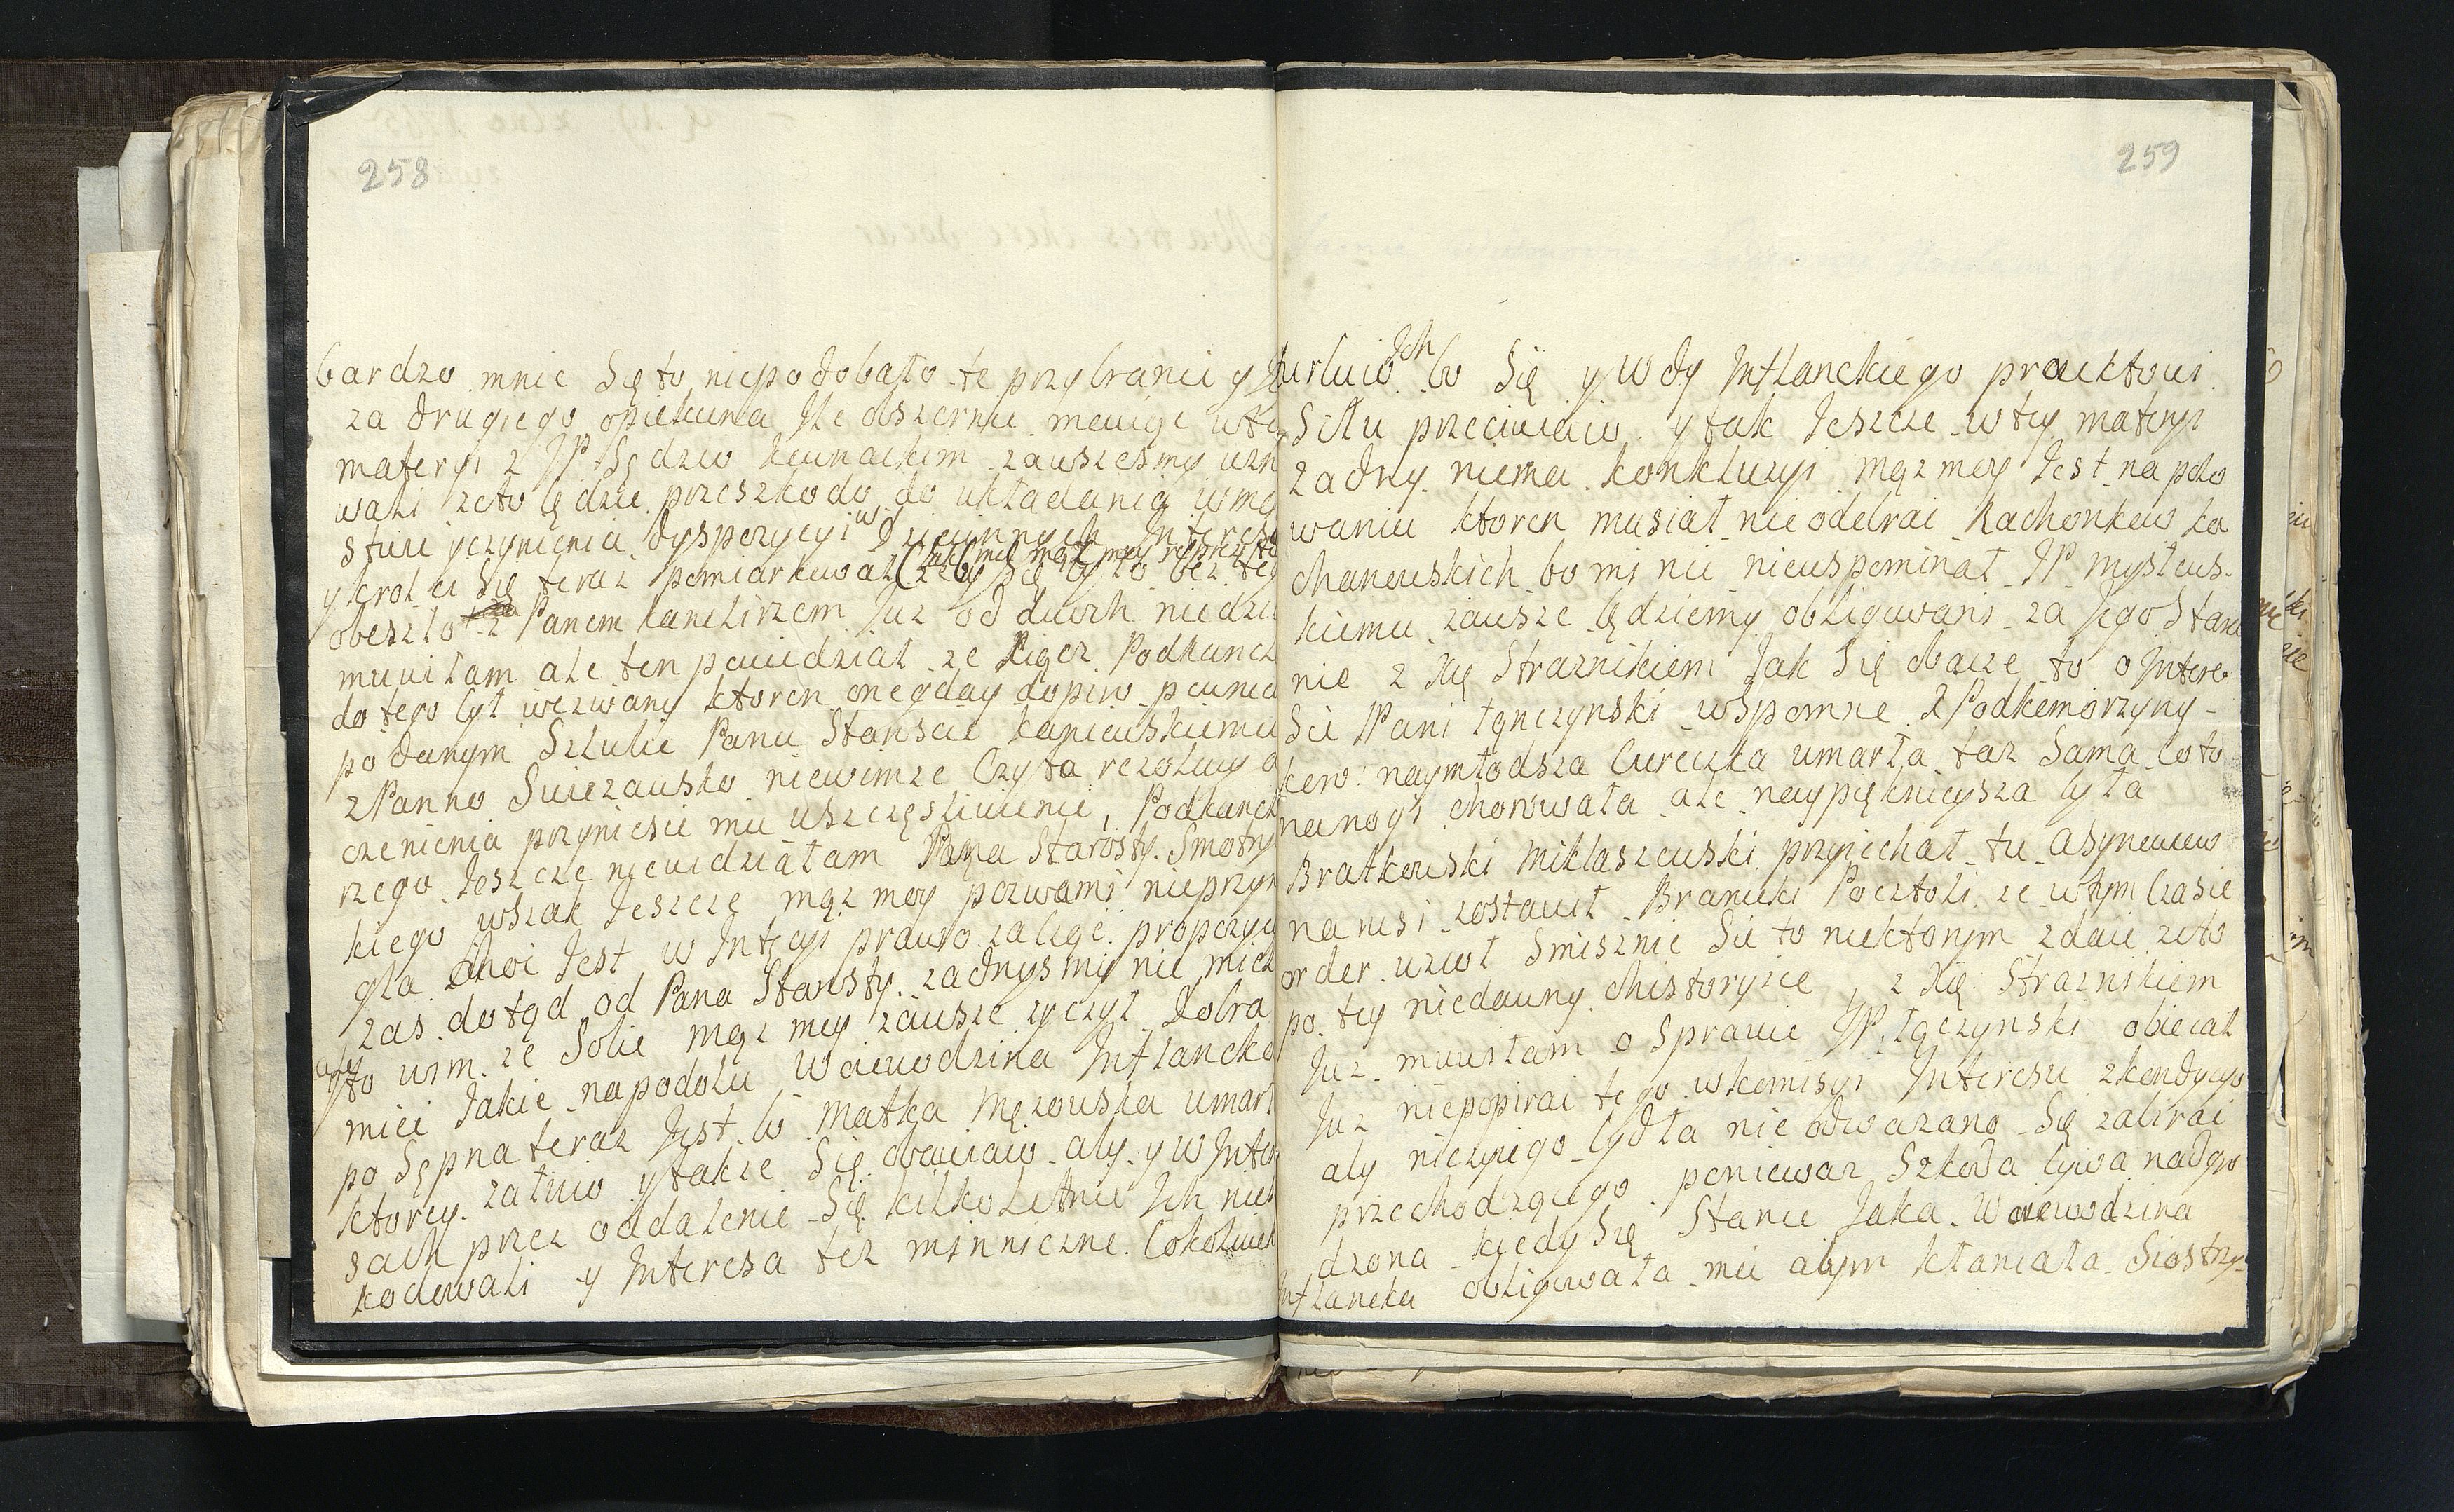 258
bardzo mnie Się to niepodobało te przybranie y
za drugiego opiekuna Jle obszernie mowiąc wte
materyi z JP Sędzio Kunackim zauszesmy uzn
wali zeto będzie przeszkodo do układania
yczynienia dyspozycyi w Interes
y krol ci Się teraz pomiarkował
obeszlo z Panem kanclerzem Juz od dwoch niedzie
muwiłam ale ten powiedział ze Xiądz Podkancl
do tego był wezwany ktoren onegday dopiro
po danym Szlubie Panu Staroscie kaniewskiemu
z Panno Swiezausko niewim ze Czy ta rezolucy
czenienia przyniesie mu uszczęsliwienie, Podkancl
rzego Jeszcze niewidziałam Pana Starosty Smotry
kiego wszak Jeszcze mąz moy pozwami nieprzyn
gla choc Jest w Intęcyi prawo zacząc propozycy
zas dotąd od Pana Starosty zadnysmy nie mieli
ato wim ze Sobie mąz moy zausze zyczył dobra
miec Jakie na podolu Woiewodzina Inflancka
posępna teraz Jest bo matka Męzowska umarł
ktorey załuio y takze Się obawiaio aby y w Inter
sach przez oddalenie Się kilkoletnie Ich nie
kodowali y Interesa tez minniczne Cokolwiek
259
turbuio Ich bo Się y Wdy Inflanckiego proiektowi
Siłu przeciwiaio y tak Jeszcze wtey materyi
zadny niema konkluzyi mąz moy Jest na polo
waniu ktoren musiał nieodebrac Rachonkow ko
chanowskich bo mi nic niewspominał JP Mysłows-
kiemu zausze będziemy obligowani za Jego Stara
nie z Xię Straznikiem Jak Się obacze to o Intere
Sie JPani Łęnczynski wspomne Z Podkomorzyny-
kow naymłodsza Cureczka umarła taz Sama Co to
nanogi chorowała ale naypiękniejsza była
Bratkowski Miklaszewski przyiechał tu
na wsi zostawił Branicki Pocztoli ze wtym Czasie
order wzwł Smisznie Sie to niektorym zdaie zeto
po tey niedawny chistoryie, z Xię Straznikiem
Juz muwiłam o Sprawie JP Łączynski obiecał
Juz niepopirac tego wkomisyi Interesu zkondycyo
aby niczyiego bydła nie odwazano Się zabirac
przechodzącego poniewaz Szkoda bywa nadgro
dzona kiedy Się Stanie Jaka Woiewodzina
Inflancka obligowała mie abym kłaniała Siostrzy-